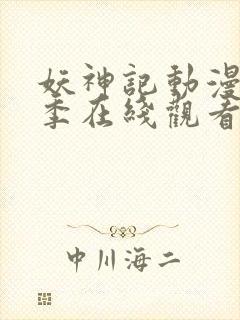 妖神記動漫
季在綫觀看
中川海二